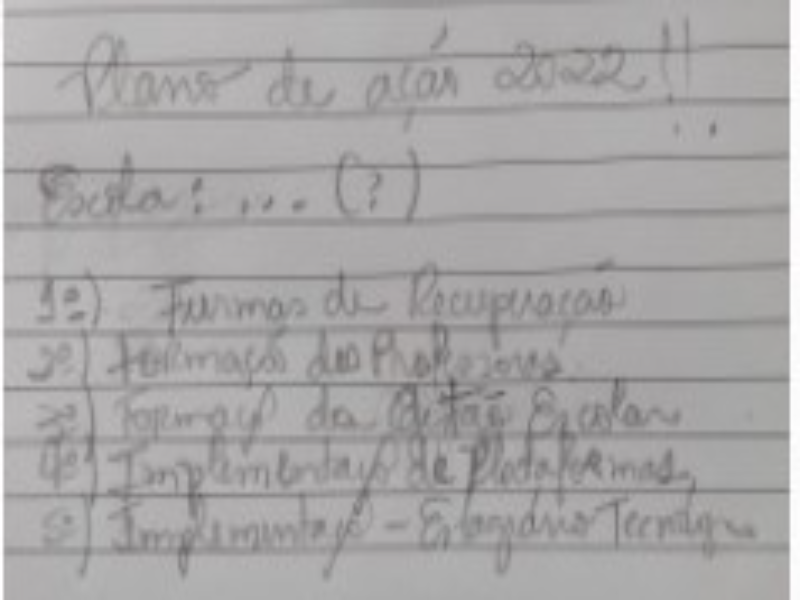 Plano de ação 2022!!
Escola: ... (?)
1º) Turmas de Recuperação
2º) Formação dos Professores
3º) Formaçã da Gestão Escolar
4º) Implementação de Plataformas,
5º) Implementaçã - Estagiário